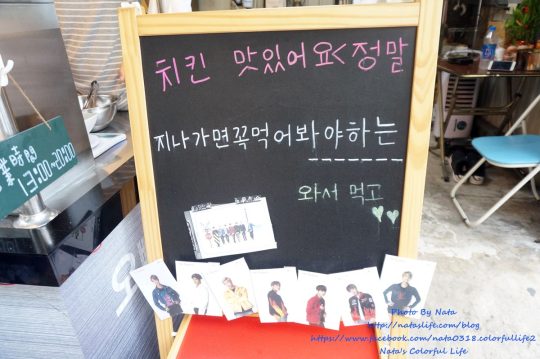 치킨 맛있어요<정말
지나가면꼭먹어봐야하는
와서 먹고
13:00~20:00
Photo By Nata
http://nataslife.com/blog
https://www.facebook.com/nata0318.colorfullife2
Nata's Colorful Life